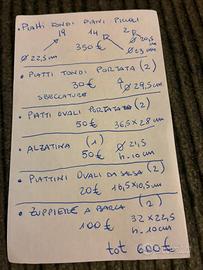 • PIATTI FONDI PIANI PICCOLI
19 14 2
Ø 22,5 cm 350€ Ø 23 cm
• PIATTI TONDI PORTATA (2)
30€ Ø 29,5 cm
SBECCATURE
• PIATTI OVALI PORTATA (2)
50€ 36,5 x 28 cm
• ALZATINA (1) Ø 21,5
50€ h. 10 cm
• PIATTINI OVALI DA SALSA (2)
20€ 16,5 x 10,5 cm
• ZUPPIERE A BARCA (2)
100€ 32 x 22,5
h. 10 cm
tot 600€